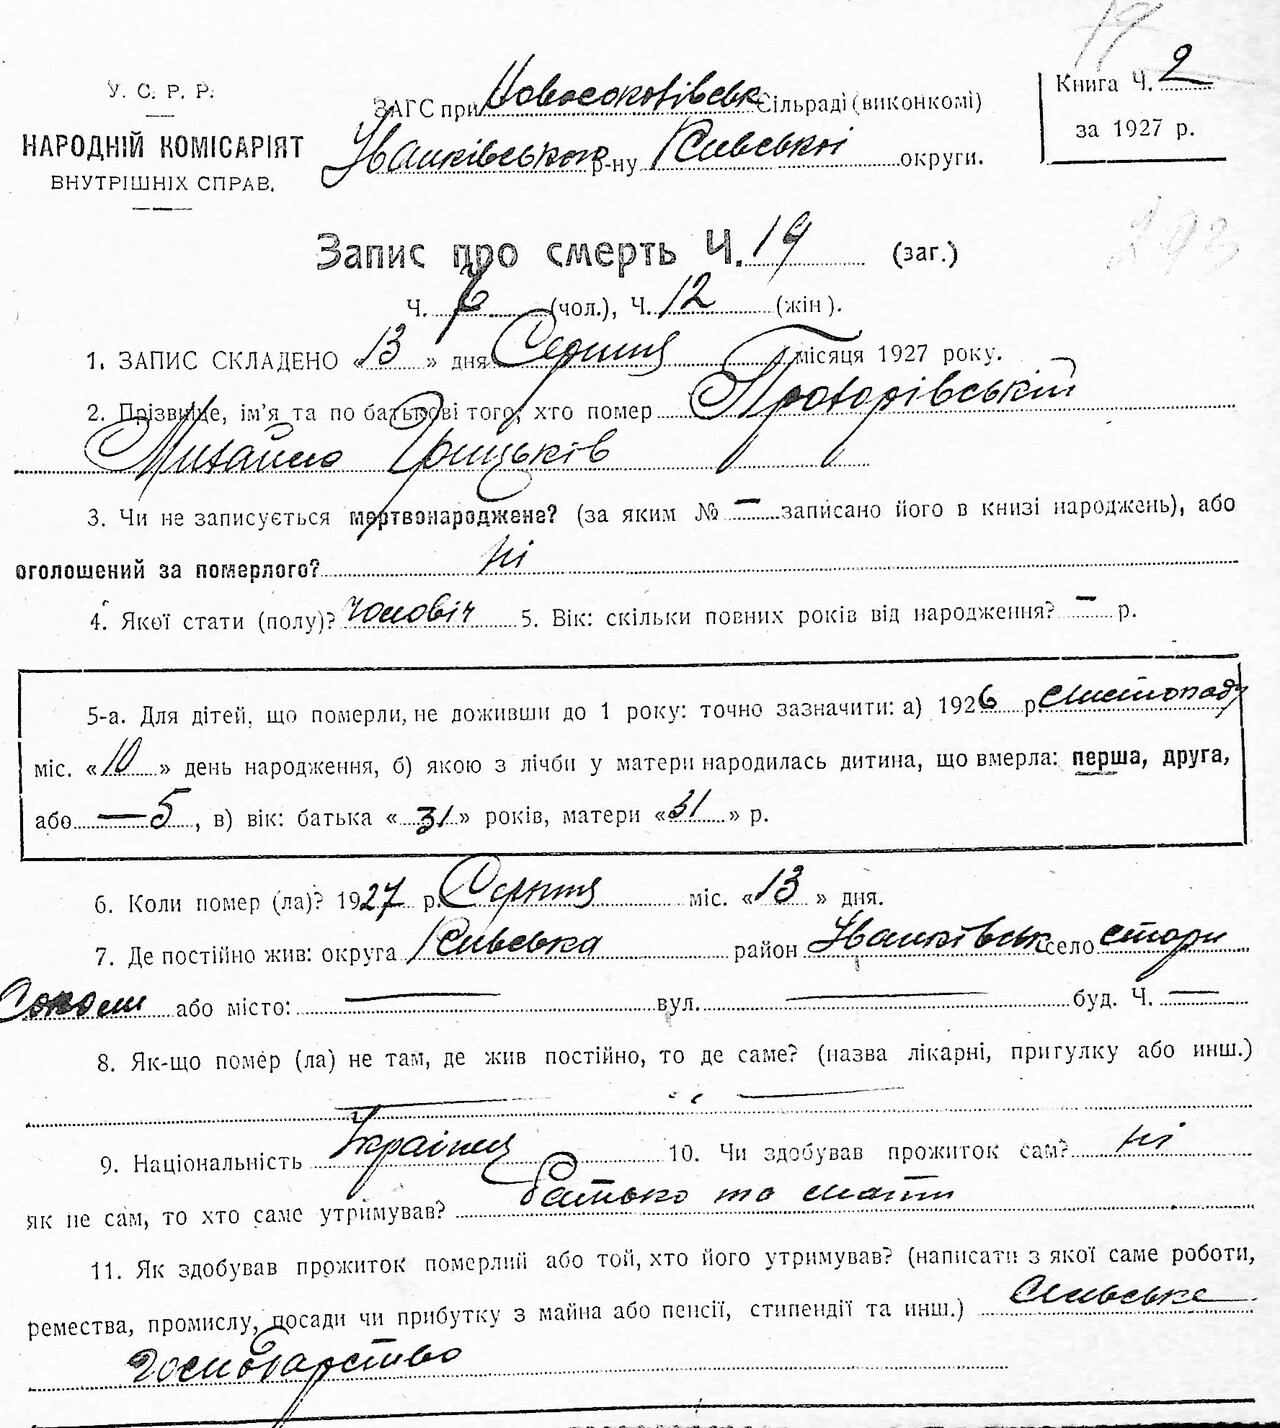 19
У. С. Р. Р.
НАРОДНІЙ КОМІСАРІЯТ
ВНУТРІШНІХ СПРАВ.
ЗАГС при Новосоколівськ Сільраді (виконкомі)
Іванківського р-ну Київської округи.
Книга Ч. 2
за 1927 р.
Запис про смерть Ч. 19 (заг.)
293
Ч. 7 (чол.), Ч. 12 (жін).
1. ЗАПИС СКЛАДЕНО «13» дня Серпня місяця 1927 року.
2. Прізвище, ім'я та по батькові того, хто помер
Михайло Грицьків
3. Чи не записується мертвонароджене? (за яким № — записано його в книзі народжень), або
оголошений за померлого? Ні
4. Якої стати (полу)? Чоловіч 5. Вік: скільки повних років від народження? — р.
5-а. Для дітей, що померли, не доживши до 1 року: точно зазначити: а) 1926 р. Листопаду
міс. «10» день народження, б) якою з лічби у матери народилась дитина, що вмерла: перша, друга,
або — 5, в) вік: батька «31» років, матери «31» р.
6. Коли помер (ла)? 1927 р. Серпня міс. «13» дня.
7. Де постійно жив: округа Київська район Іванківськ село Стари
Соколи або місто: — вул. — буд. Ч. —
8. Як-що помер (ла) не там, де жив постійно, то де саме? (назва лікарні, пригулку або инш.)
9. Національність Українец 10. Чи здобував прожиток сам? Ні
як не сам, то хто саме утримував? батько та мати
11. Як здобував прожиток померлий або той, хто його утримував? (написати з якої саме роботи,
ремества, промислу, посади чи прибутку з майна або пенсії, стипендії та инш.) Сильське
Господарство